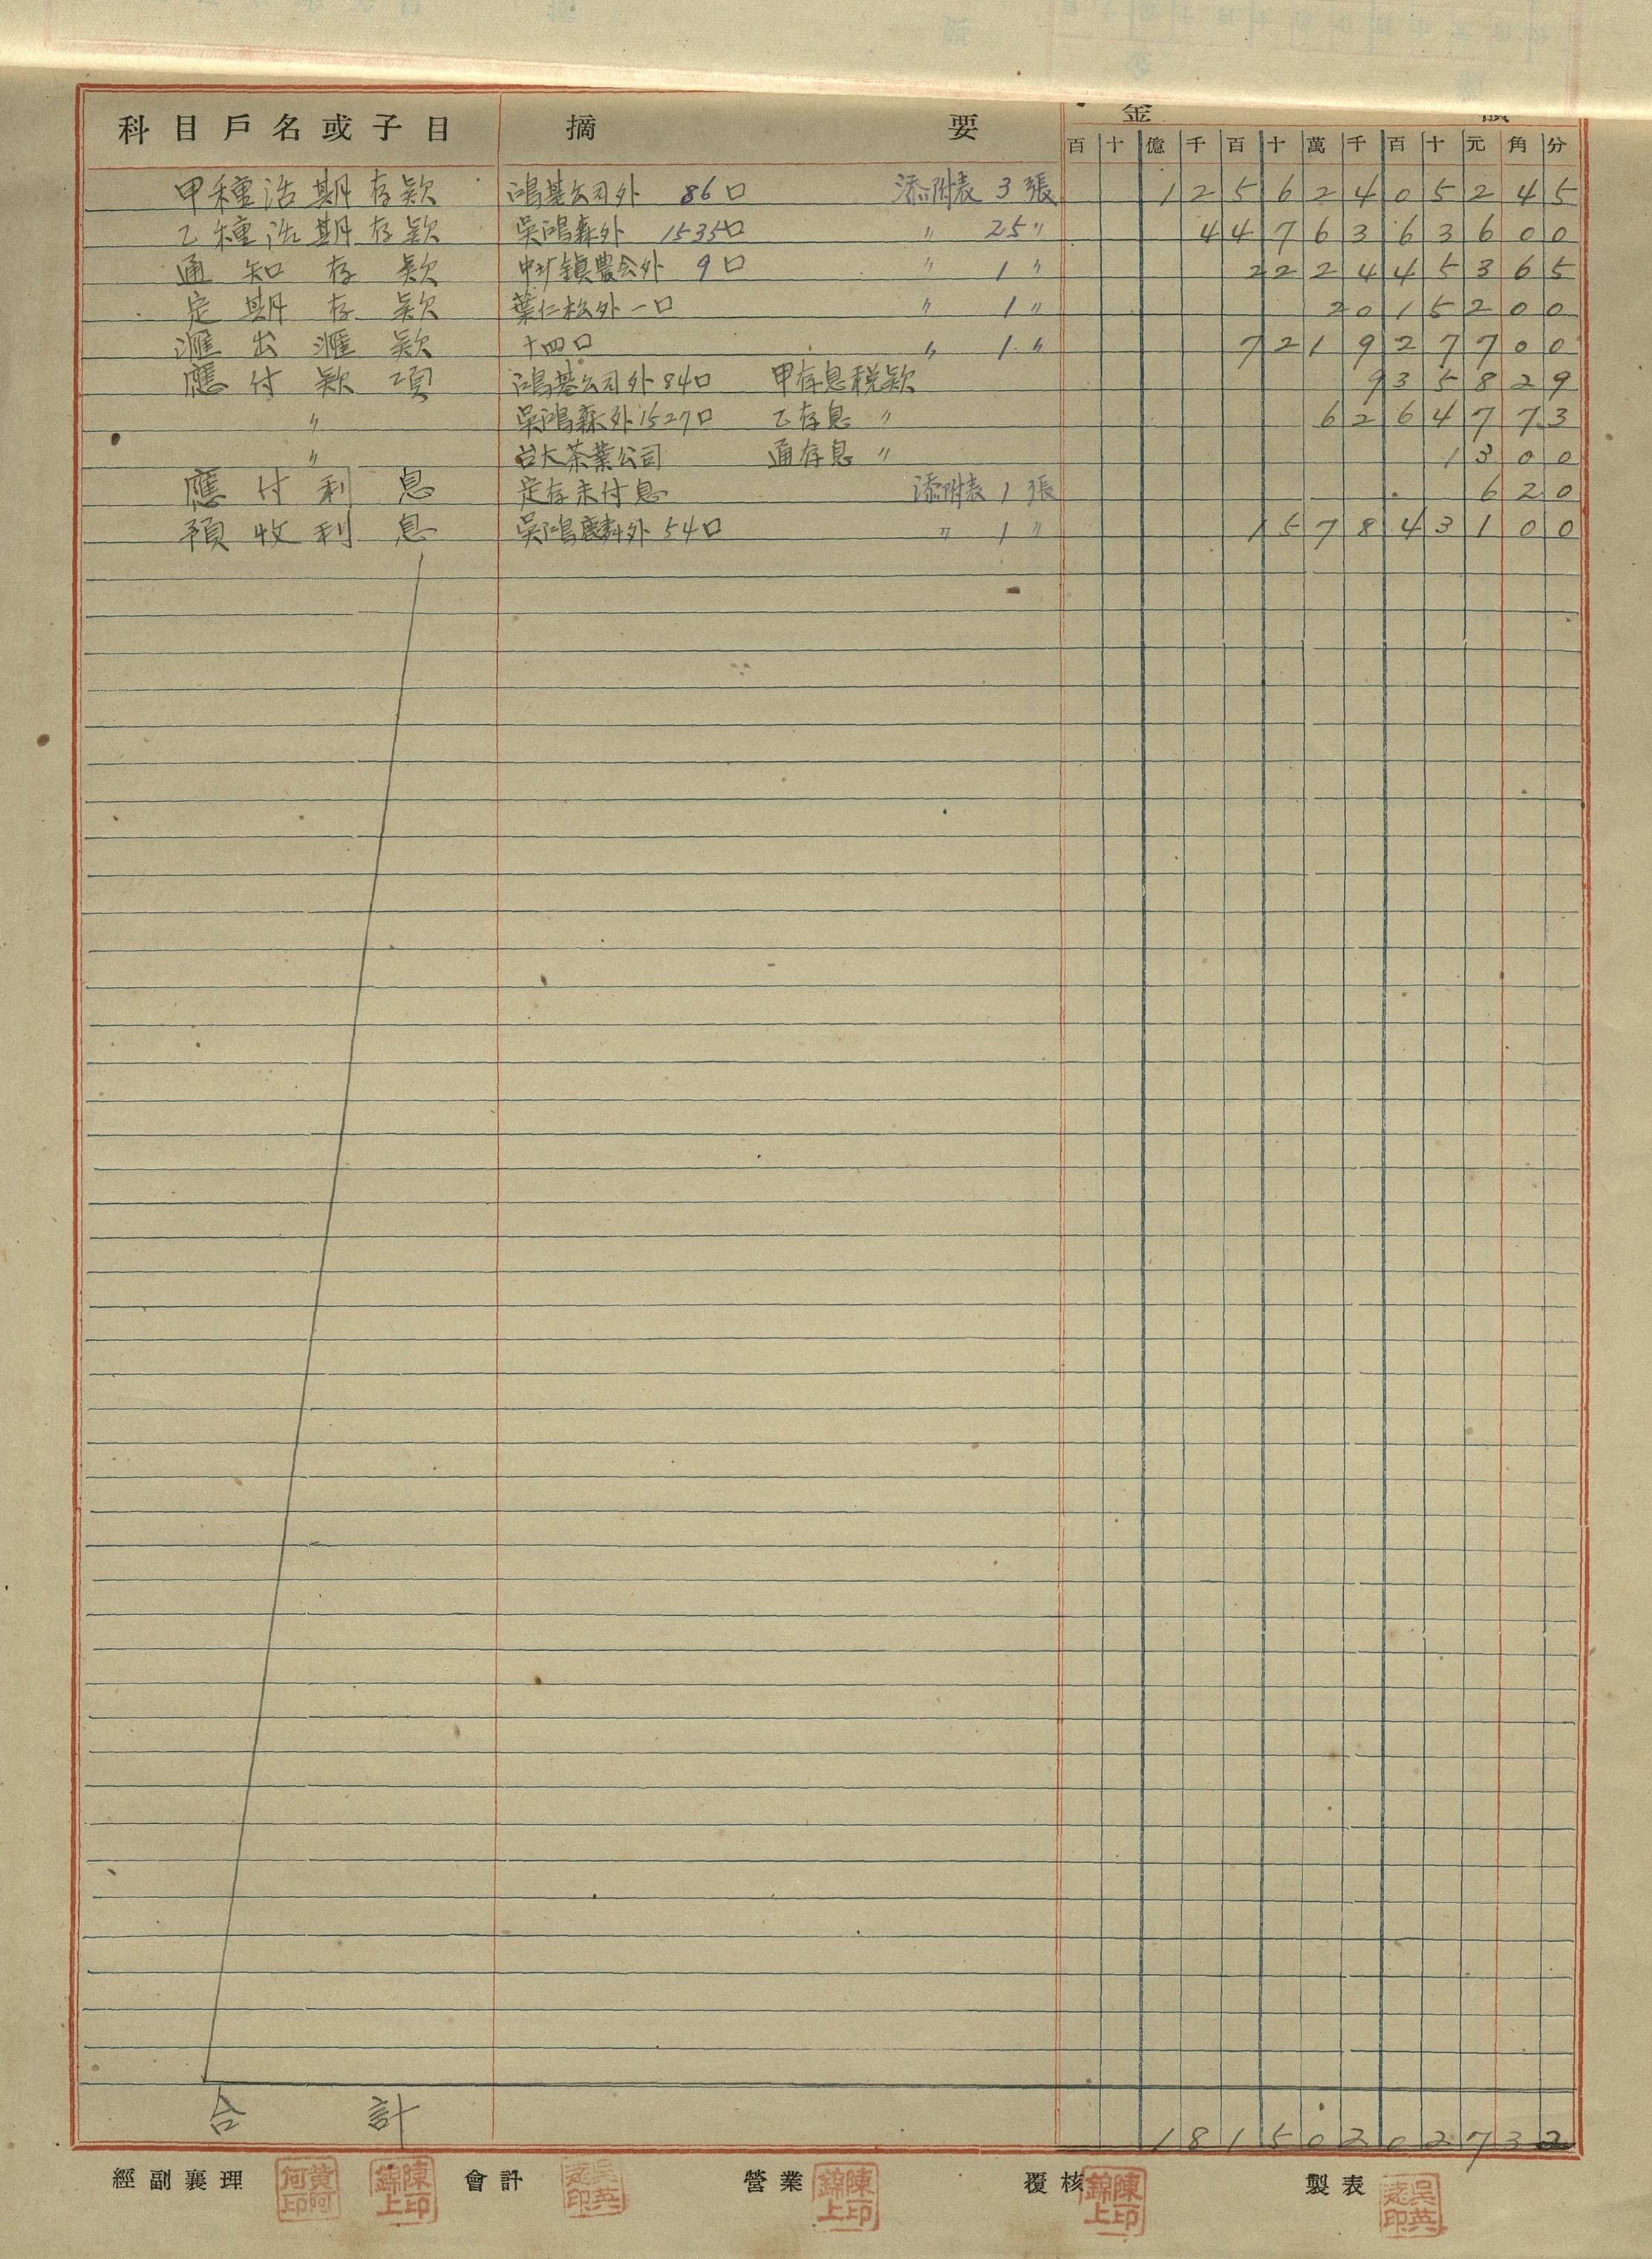 科目戶名或子目 摘要 金額
百十億千百十萬千百十元角分
甲種活期存款 鴻基公司外 86口 添附表 3 張 12562405245
乙種活期存款 吳鴻森外 1535口 〃 25 〃 4476363600
通知存款 中壢鎮農会外 9口 〃 1 〃 222445365
定期存款 葉仁松外一口 〃 1 〃 2015200
滙出滙款 十四口 〃 1 〃 721927700
應付款項 鴻基公司外84口 甲存息稅款 935829
〃 吳鴻森外1527口 乙存息 〃 6264773
〃 台大茶業公司 通存息 〃 1300
應付利息 定存未付息 添附表 1 張 620
預收利息 吳鴻麟外 54口 〃 1 〃 157843100
合計 18150202732
經副襄理 會計 營業 覆核 製表
黃阿何印 陳錦上印 陳錦上印 陳錦上印